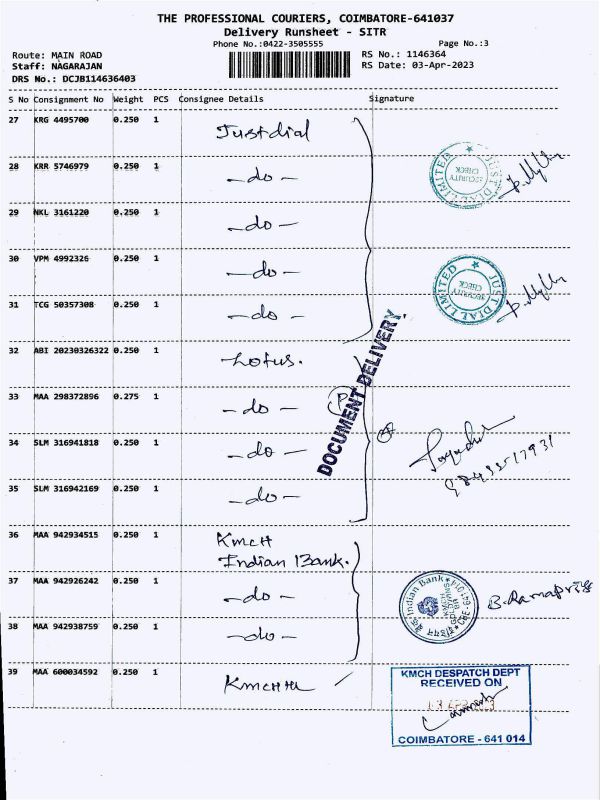 THE PROFESSIONAL COURIERS, COIMBATORE-641037
Delivery Runsheet - SITR
Phone No.:0422-3505555
Page No.:3
Route: MAIN ROAD
RS No.: 1146364
Staff: NAGARAJAN
RS Date: 03-Apr-2023
DRS No.: DCJB114636403
S No Consignment No Weight PCS Consignee Details Signature
27 KRG 4495700 0.250 1 Justdial
28 KRR 5746979 0.250 1 -do-
29 NKL 3161220 0.250 1 -do-
30 VPM 4992326 0.250 1 -do-
31 TCG 50357308 0.250 1 -do-
32 ABI 20230326322 0.250 1 Lotus.
33 MAA 298372896 0.275 1 -do-
34 SLM 316941818 0.250 1 -do-
35 SLM 316942169 0.250 1 -do-
36 MAA 942934515 0.250 1 KMCH
Indian Bank.
37 MAA 942926242 0.250 1 -do-
38 MAA 942938759 0.250 1 -do-
39 MAA 600034592 0.250 1
JUST DIAL LIMITED
SECURITY
CHECK
JUST DIAL LIMITED
SECURITY
CHECK
DOCUMENT DELIVERY.
Indian Bank
KMCH DESPATCH DEPT
RECEIVED ON
COIMBATORE - 641 014